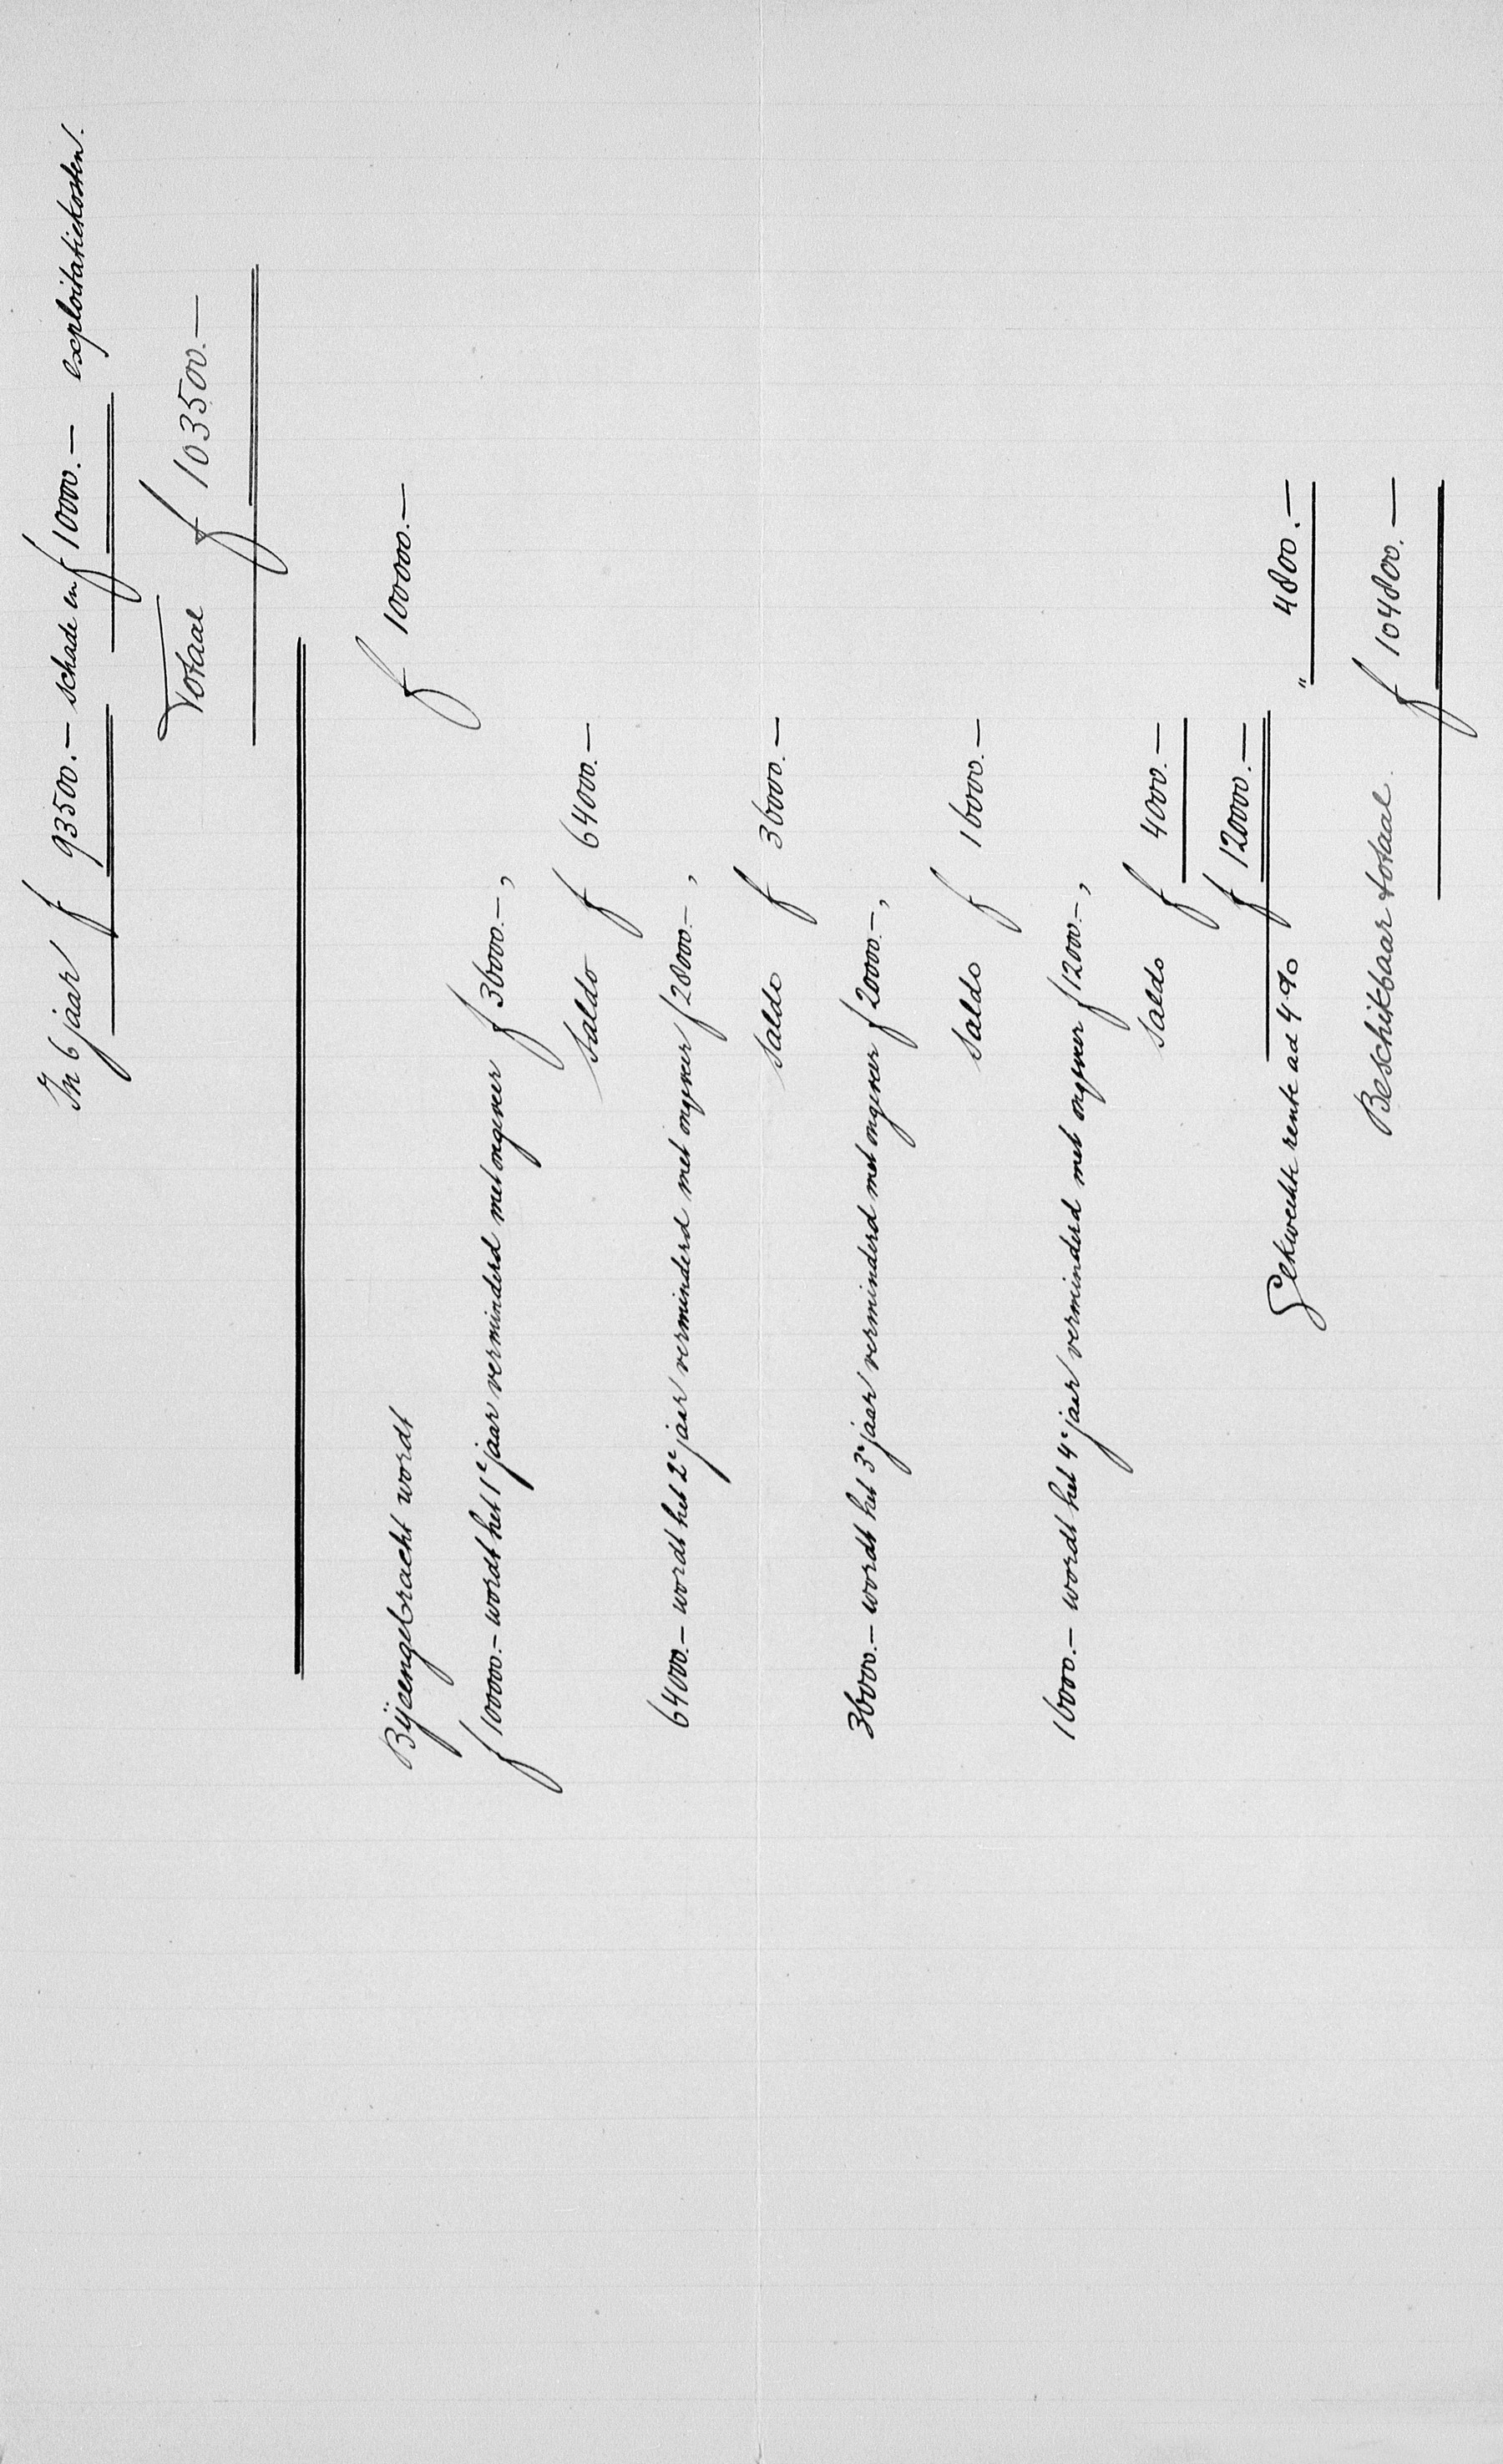 In 6 jaar f 93500.— schade en f 10000.— exploitatiekosten.
Totaal f 103500.—
Bijeengebracht wordt f 100000.—
f 100000.— wordt het 1e jaar verminderd met ongeveer f 36000.—,
Saldo f 64000.—
64000.— wordt het 2e jaar verminderd met ongeveer f 28000.—,
Saldo f 36000.—
36000.— wordt het 3e jaar verminderd met ongeveer f 20000.—,
Saldo f 16000.—
16000.— wordt het 4e jaar verminderd met ongeveer f 12000.—,
Saldo f 4000.—
f 120000.—
Gekweekte rente ad 4% " 4800.—
Beschikbaar totaal. f 104800.—